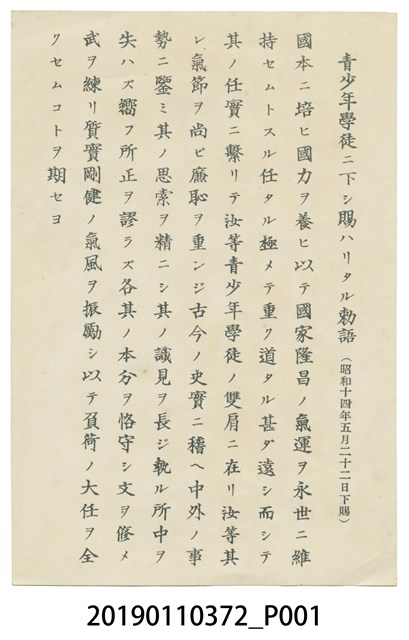 青少年學徒ニ下シ賜ハリタル勅語（昭和十四年五月二十二日下賜）
國本ニ培ヒ國力ヲ養ヒ以テ國家隆昌ノ氣運ヲ永世ニ維
持セムトスル任タル極メテ重ク道タル甚ダ遠シ而シテ
其ノ任實ニ繋リテ汝等青少年學徒ノ雙肩ニ在リ汝等其
レ氣節ヲ尚ビ廉恥ヲ重ンジ古今ノ史實ニ稽ヘ中外ノ事
勢ニ鑒ミ其ノ思索ヲ精ニシ其ノ識見ヲ長ジ執ル所中ヲ
失ハズ嚮フ所正ヲ謬ラズ各其ノ本分ヲ恪守シ文ヲ修メ
武ヲ練リ質實剛健ノ氣風ヲ振勵シ以テ負荷ノ大任ヲ全
クセムコトヲ期セヨ
20190110372_P001